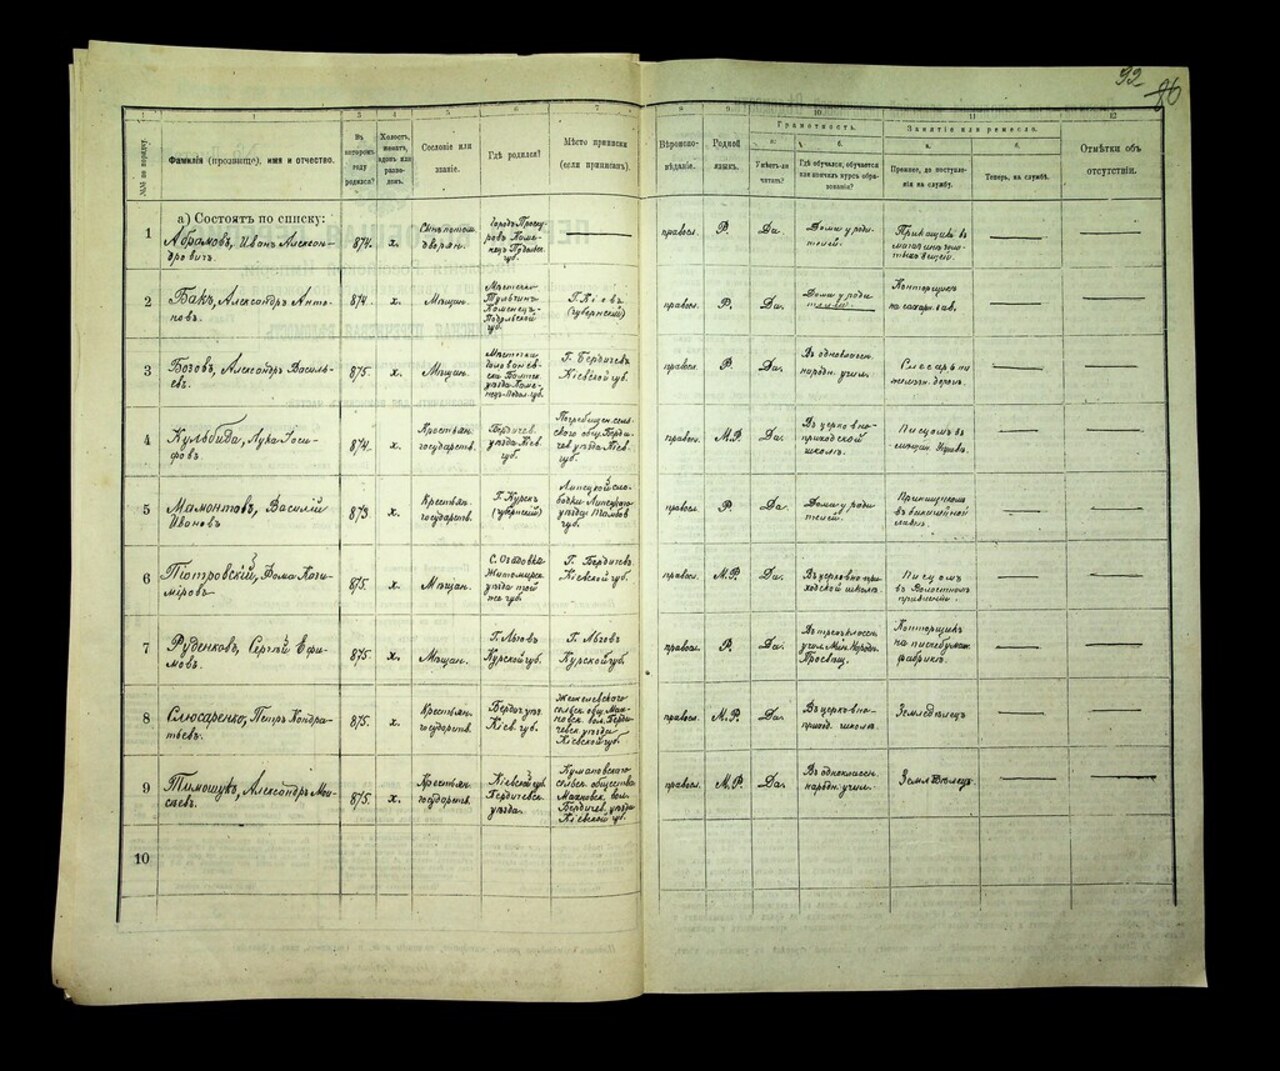 99
86
1 2 3 4 5 6 7 8 9 10 11 12
№№ по порядку.
Фамилія (прозвище), имя и отчество.
Въ которомъ году родился?
Холостъ, женатъ, вдовъ или разведенъ.
Сословіе или званіе.
Гдѣ родился?
Мѣсто приписки (если приписанъ).
Вѣроисповѣданіе.
Родной языкъ.
Грамотность.
а. Умѣетъ-ли читать?
б. Гдѣ обучался, обучается или кончилъ курсъ образованія?
Занятіе или ремесло.
а. Прежнее, до поступленія на службу.
б. Теперь, на службѣ.
Отмѣтки объ отсутствіи.
а) Состоятъ по списку:
1 Абрамовъ, Иванъ Александровичъ. 874. х. Сынъ потом. дворян. Городъ Проскуровъ Каменец-Подольск. губ. — правосл. Р. Да. Дома у родителей. Прикащикъ въ магазинѣ — —
2 Бакъ, Александръ Антоновъ. 874. х. Мѣщан. Мѣстечко Тульчинъ Каменецъ-Подольской губ. Г. Кіевъ (губернскій) правосл. Р. Да. Дома у родителей. Конторщикъ на сахарн. зав. — —
3 Боговъ, Александръ Васильевъ. 875. х. Мѣщан. Мѣстечка Голованевска Балтск. уѣзда Каменец-Подол. губ. Г. Бердичевъ Кіевской губ. правосл. Р. Да. Въ одноклассн. народн. учил. Слесарь на желѣзн. дорогѣ. — —
4 Кульбида, Лука Іосифовъ. 874. х. Крестьян. государств. Бердичев. уѣзда Кіев. губ. Погребищен. сельского общ. Бердичев. уѣзда Кіев. губ. правосл. М.Р. Да. Въ церковно-приходской школѣ. Писцомъ въ — —
5 Мамонтовъ, Василій Ивановъ 873. х. Крестьян. государств. Г. Курскъ (губернскій) Липецкой слободки Липецкого уѣзда Тамбов. губ. правосл. Р. Да. Дома у родителей. Прикащикомъ въ бакалейной лавкѣ. — —
6 Піотровскій, Фома Казиміровъ 875. х. Мѣщан. С. Огадовка Житомирск. уѣзда той же губ. Г. Бердичевъ Кіевской губ. правосл. М.Р. Да. Въ церковно-приходской школѣ. Писцомъ въ Волостномъ правленіи. — —
7 Руденковъ, Сергѣй Ефимовъ. 875. х. Мѣщан. Г. Льговъ Курской губ. Г. Льговъ Курской губ. правосл. Р. Да. Въ трехклассн. учил. Мин. Народн. Просвѣщ. Конторщикъ на писчебумаж. фабрикѣ. — —
8 Слюсаренко, Петръ Кондратьевъ. 875. х. Крестьян. государств. Бердич. уѣз. Кіев. губ. Жежелевского сельск. общ. Махновск. вол. Бердичевск. уѣзда Кіевской губ. правосл. М.Р. Да. Въ церковно-приход. школѣ. Земледѣлецъ — —
9 Тимошукъ, Александръ Моисѣевъ. 875. х. Крестьян. государств. Кіевской губ. Бердичевск. уѣзда. Кумановскаго сельск. общества Махновск. вол. Бердичев. уѣзда Кіевской губ. правосл. М.Р. Да. Въ одноклассн. народн. учил. Земледѣлецъ — —
10